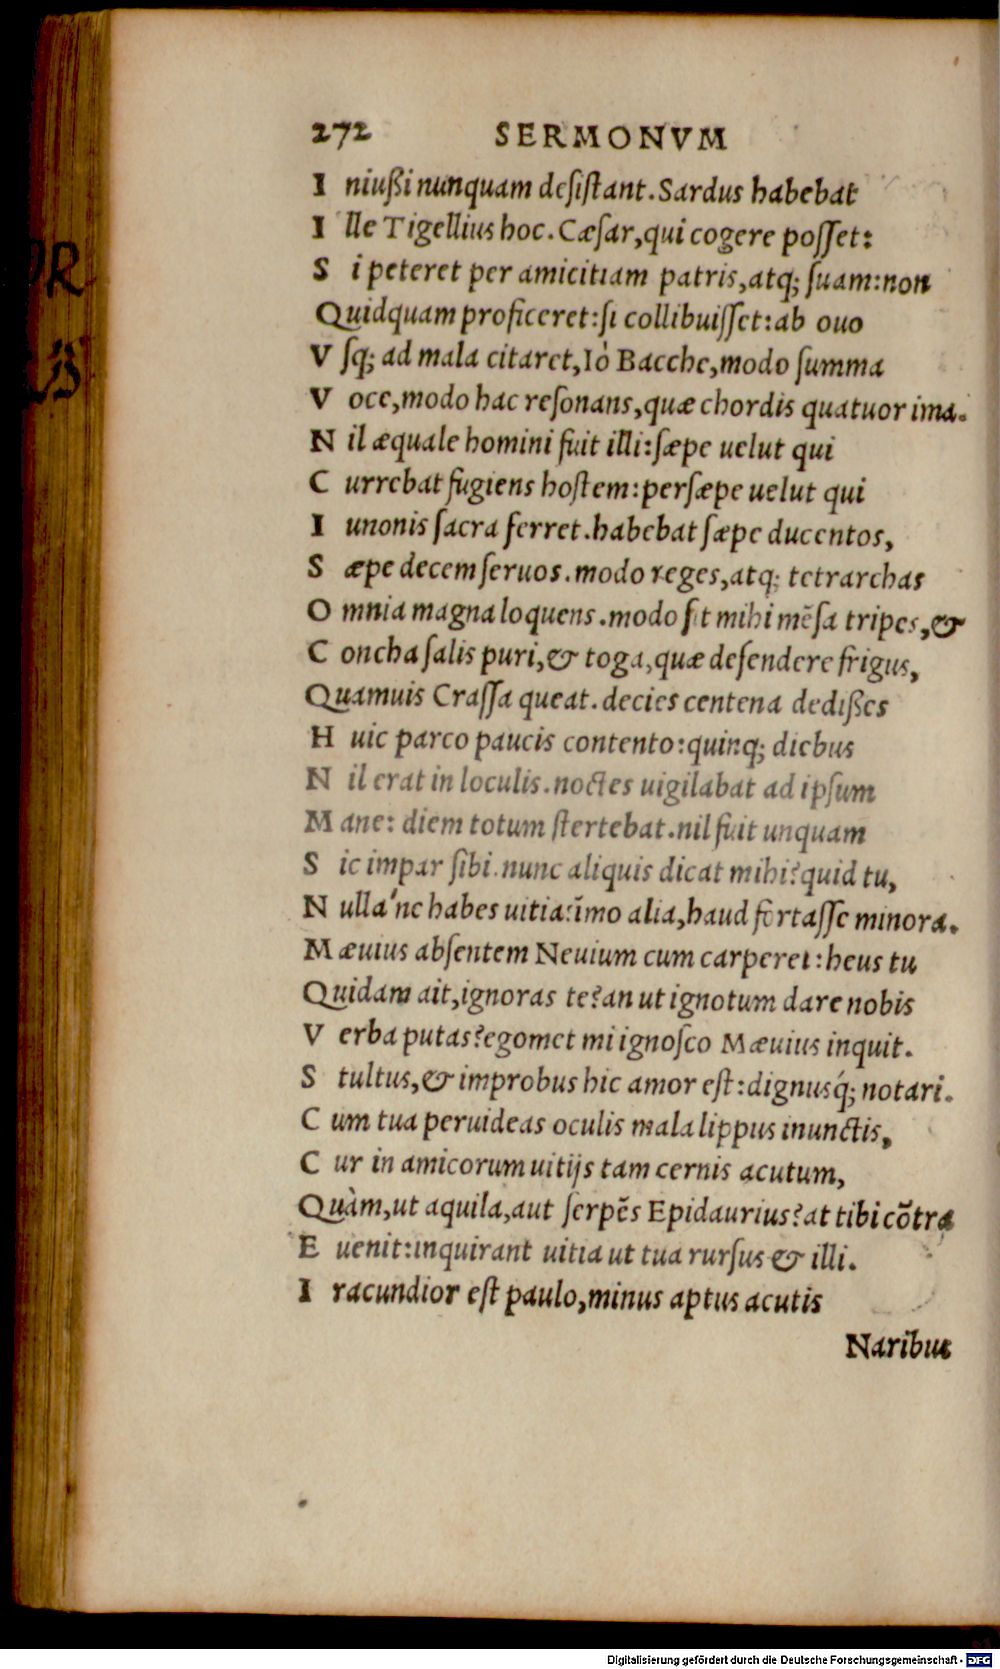 272 SERMONVM
I niußi nunquam desistant. Sardus habebat
I lle Tigellius hoc. Cæsar, qui cogere posset:
S i peteret per amicitiam patris, atq; suam: non
Quidquam proficeret: si collibuisset: ab ouo
V sq; ad mala citaret, Iò Bacche, modo summa
V oce, modo hac resonans, quæ chordis quatuor ima.
N il æquale homini fuit illi: sæpe uelut qui
C urrebat fugiens hostem: persæpe uelut qui
I unonis sacra ferret. habebat sæpe ducentos,
S æpe decem seruos. modo reges, atq; tetrarchas
O mnia magna loquens. modo sit mihi mēsa tripes, &
C oncha salis puri, & toga, quæ defendere frigus,
Quamuis Crassa queat. decies centena dedißes
H uic parco paucis contento: quinq; diebus
N il erat in loculis. noctes uigilabat ad ipsum
M ane: diem totum stertebat. nil fuit unquam
S ic impar sibi. nunc aliquis dicat mihi? quid tu,
N ulla'ne habes uitia? īmo alia, haud fortasse minora.
M æuius absentem Neuium cum carperet: heus tu
Quidam ait, ignoras te? an ut ignotum dare nobis
V erba putas? egomet mi ignosco Mæuius inquit.
S tultus, & improbus hic amor est: dignusq́; notari.
C um tua peruideas oculis mala lippus inunctis,
C ur in amicorum uitijs tam cernis acutum,
Quàm, ut aquila, aut serpēs Epidaurius? at tibi cōtra
E uenit: inquirant uitia ut tua rursus & illi.
I racundior est paulo, minus aptus acutis
Naribus
Digitalisierung gefördert durch die Deutsche Forschungsgemeinschaft - DFG